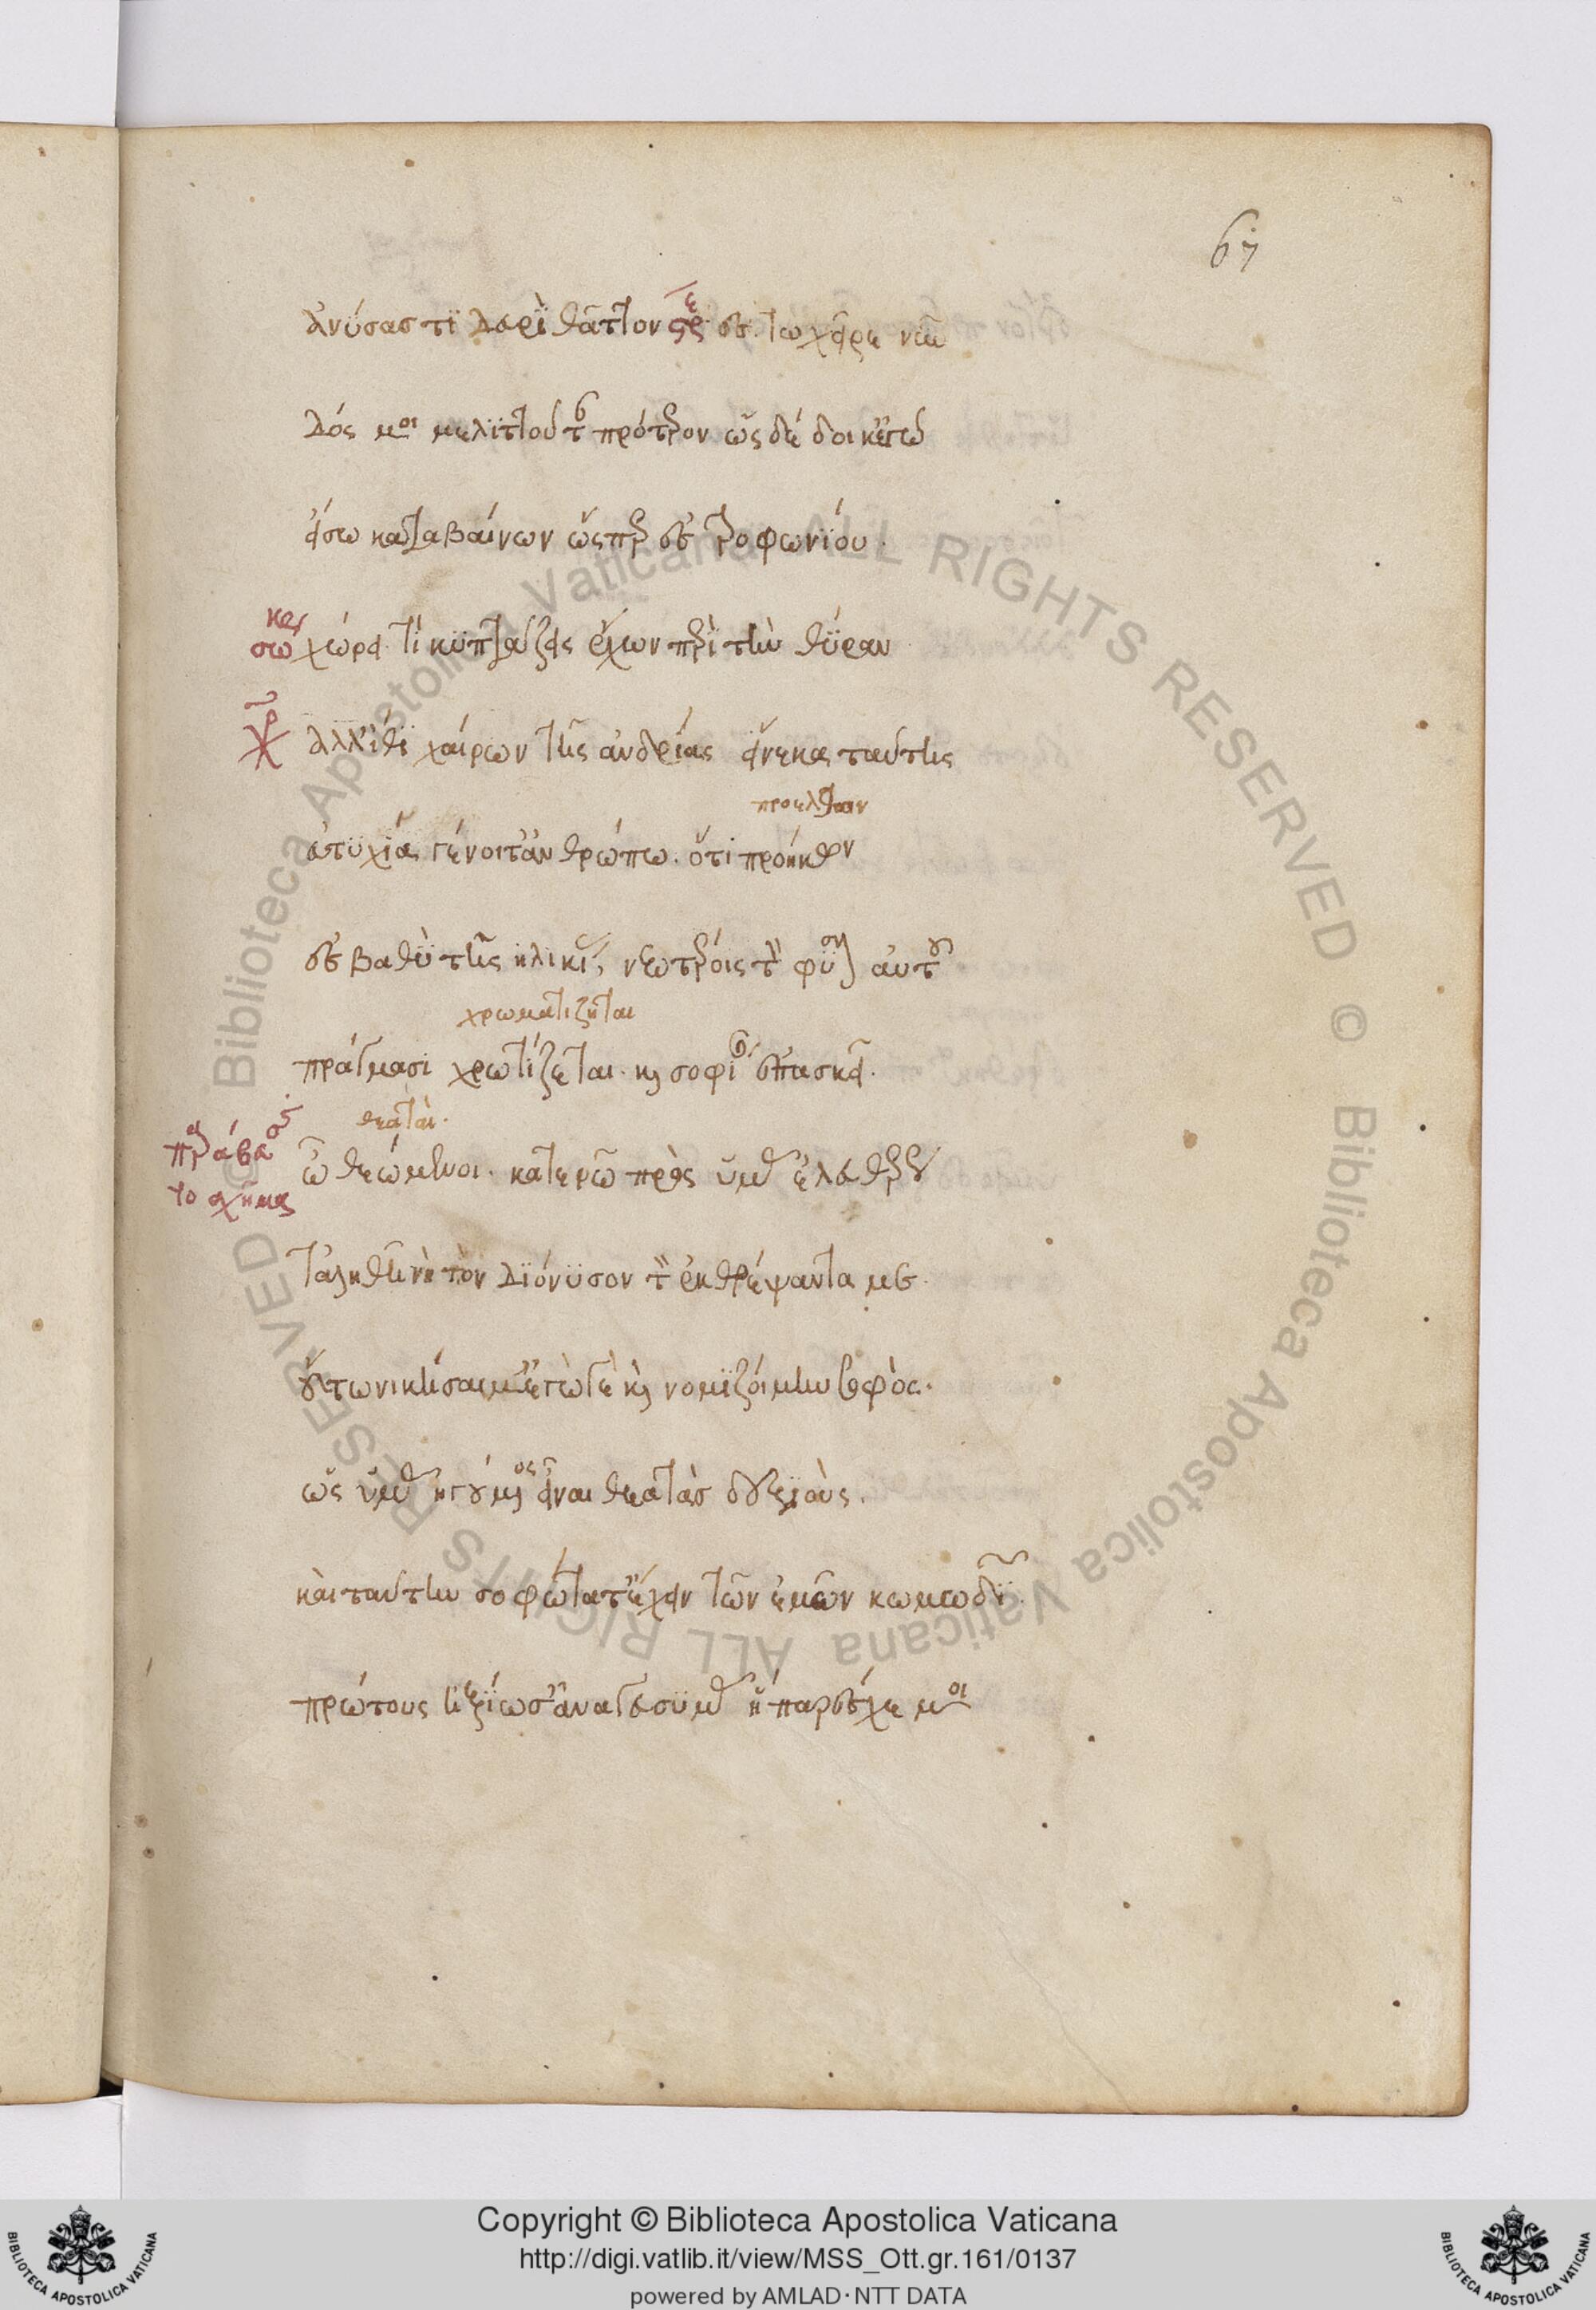 67
ἀνύσας τϊ δευρὶ θᾶττον στρε εἰς τὼ χεῖρέ νῦν
δός μοι μελιτοῦτταν πρότερον ὡς δέδοικ' ἐγὼ
εἴσω καταβαίνων ὥσπερ εἰς τροφωνίου.
σωκρ χώρει τί κυπτάζεις ἔχων περὶ τὴν θύραν
χορ ἀλλ' ἴθι χαίρων τῆς ἀνδρείας εἵνεκα ταύτης
προελθὼν
εὐτυχία γένοιτ' ἀνθρώπω. ὅτι προήκων
εἰς βαθὺ τῆς ἡλικίας, νεωτέροις τὴν φύσιν αὐτοῦ
χρωματίζεται
πράγμασι χρωτίζεται. καὶ σοφίαν ἐπασκεῖ.
θεαταὶ.
παράβασις ὦ θεώμενοι. κατερῶ πρὸς ὑμᾶς ἐλευθέρως
το σχῆμα
τἀληθῆ νὴ τὸν διόνυσον τὸν ἐκθρέψαντά με.
οὕτω νικήσαιμ' ἔγωγε καὶ νομιζοίμην σοφὸς.
ὡς ὑμᾶς ἡγούμενος εἶναι θεατὰς δεξιοὺς.
καὶ ταύτην σοφώτατ' ἔχειν τῶν ἐμῶν κωμωδιῶν.
πρώτους ἠξίωσ' ἀναγεῦσ' ὑμᾶς ἣ παρέσχε μοι
Copyright © Biblioteca Apostolica Vaticana
http://digi.vatlib.it/view/MSS_Ott.gr.161/0137
powered by AMLAD·NTT DATA
BIBLIOTECA APOSTOLICA VATICANA
BIBLIOTECA APOSTOLICA VATICANA
© Biblioteca Apostolica Vaticana ALL RIGHTS RESERVED © Biblioteca Apostolica Vaticana ALL RIGHTS RESERVED